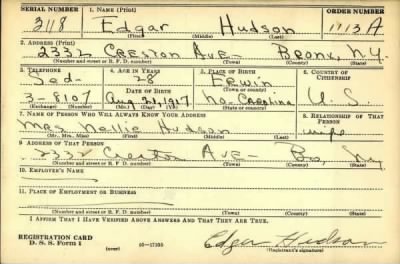 SERIAL NUMBER 1. NAME (Print) ORDER NUMBER
3118 Edgar Hudson 1713 A
(First) (Middle) (Last)
2. ADDRESS (Print)
2332 CRESTON AVE— BRONX, N.Y.
(Number and street or R. F. D. number) (Town) (County) (State)
3. TELEPHONE 4. AGE IN YEARS 5. PLACE OF BIRTH 6. COUNTRY OF CITIZENSHIP
Sed— 28 Erwin
DATE OF BIRTH
3-8107 Aug 21, 1917 No. Carolina U.S.
(Exchange) (Number) (Mo.) (Day) (Yr.) (State or county)
7. NAME OF PERSON WHO WILL ALWAYS KNOW YOUR ADDRESS 8. RELATIONSHIP OF THAT PERSON
Mrs. Nellie Hudson wife
(Mr., Mrs., Miss) (First) (Middle) (Last)
9. ADDRESS OF THAT PERSON
2332 Creston AVE— Bx, Ny
(Number and street or R. F. D. number) (Town) (County) (State)
10. EMPLOYER'S NAME
11. PLACE OF EMPLOYMENT OR BUSINESS
(Number and street or R. F. D. number) (Town) (County) (State)
I AFFIRM THAT I HAVE VERIFIED ABOVE ANSWERS AND THAT THEY ARE TRUE.
REGISTRATION CARD
D. S. S. Form 1 (over) 16—17105 Edgar Hudson
(Registrant's signature)